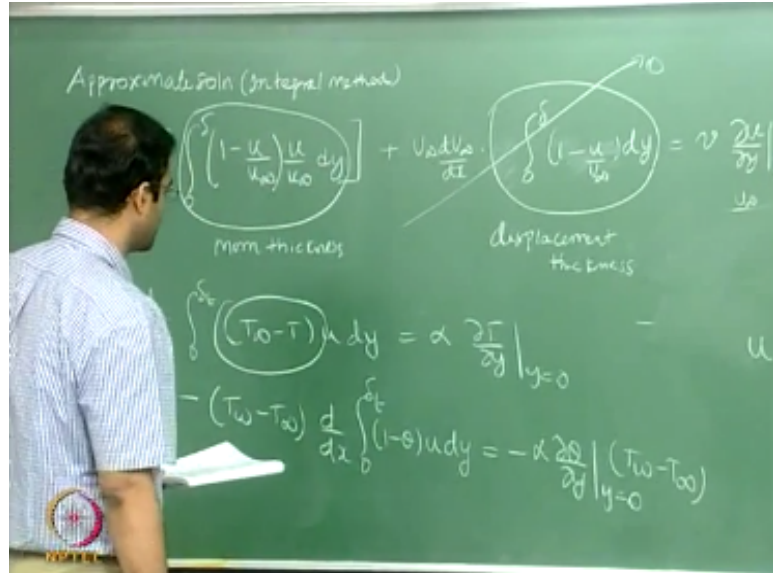 Approximate soln (Integral method)
∫₀^δ (1 - u/u∞) u/u∞ dy ] + U∞ dU∞/dx · ∫₀^δ (1 - u/U∞) dy → 0 = ν ∂u/∂y |
U∞
Mom thickness
displacement
thickness
∫₀^δt (T∞ - T) u dy = α ∂T/∂y |y=0
u
- (Tw - T∞) d/dx ∫₀^δt (1-θ) u dy = - α ∂θ/∂y |y=0 (Tw - T∞)
NPTEL